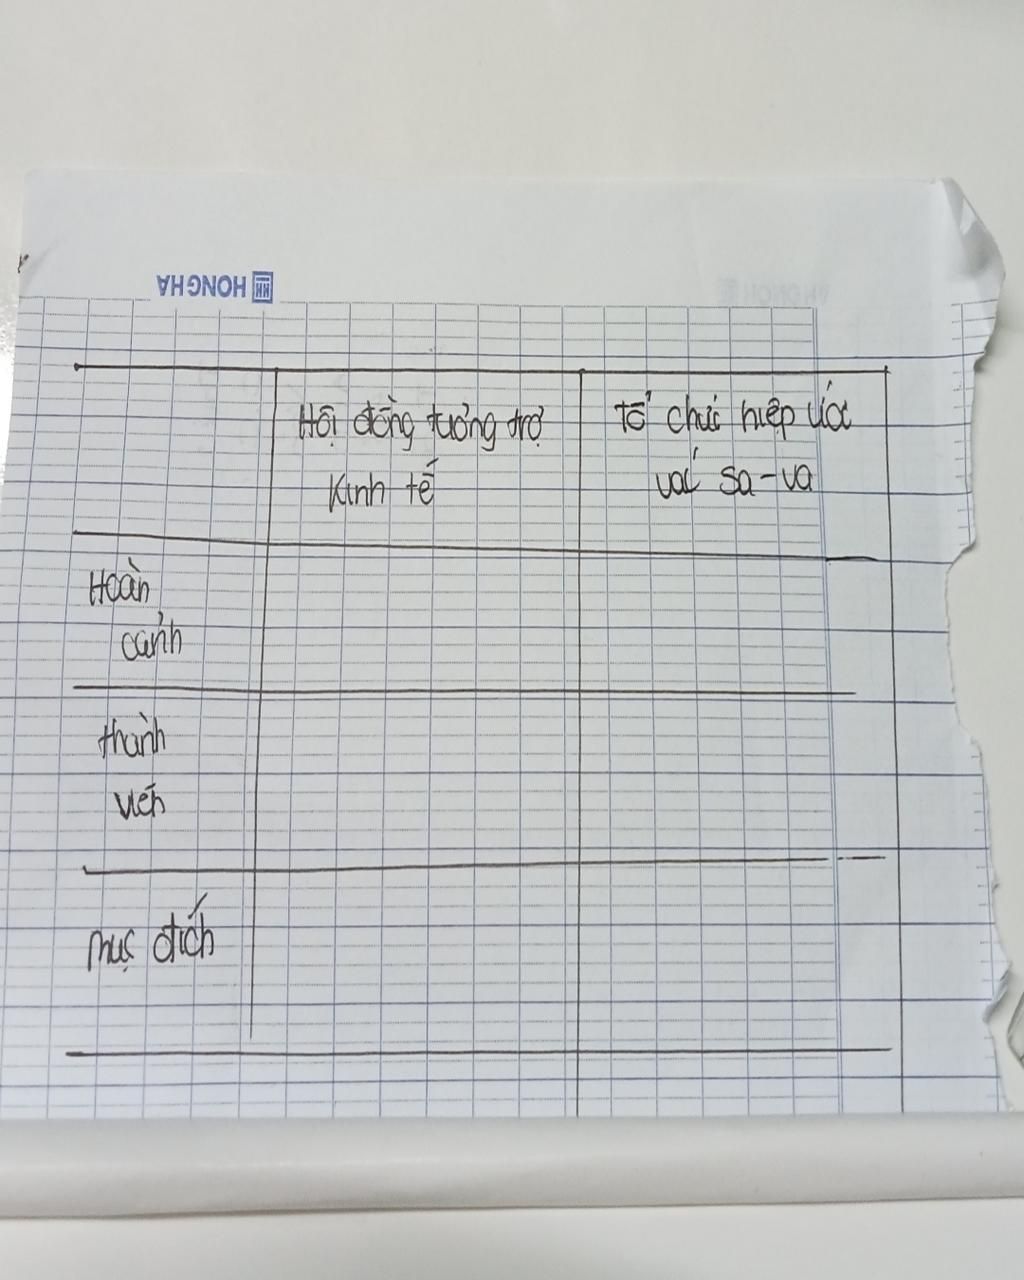 HONG HA
Hội đồng tương trợ
Kinh tế
Tổ chức hiệp ước
vác sa-va
Hoàn
cảnh
thành
viên
mục đích